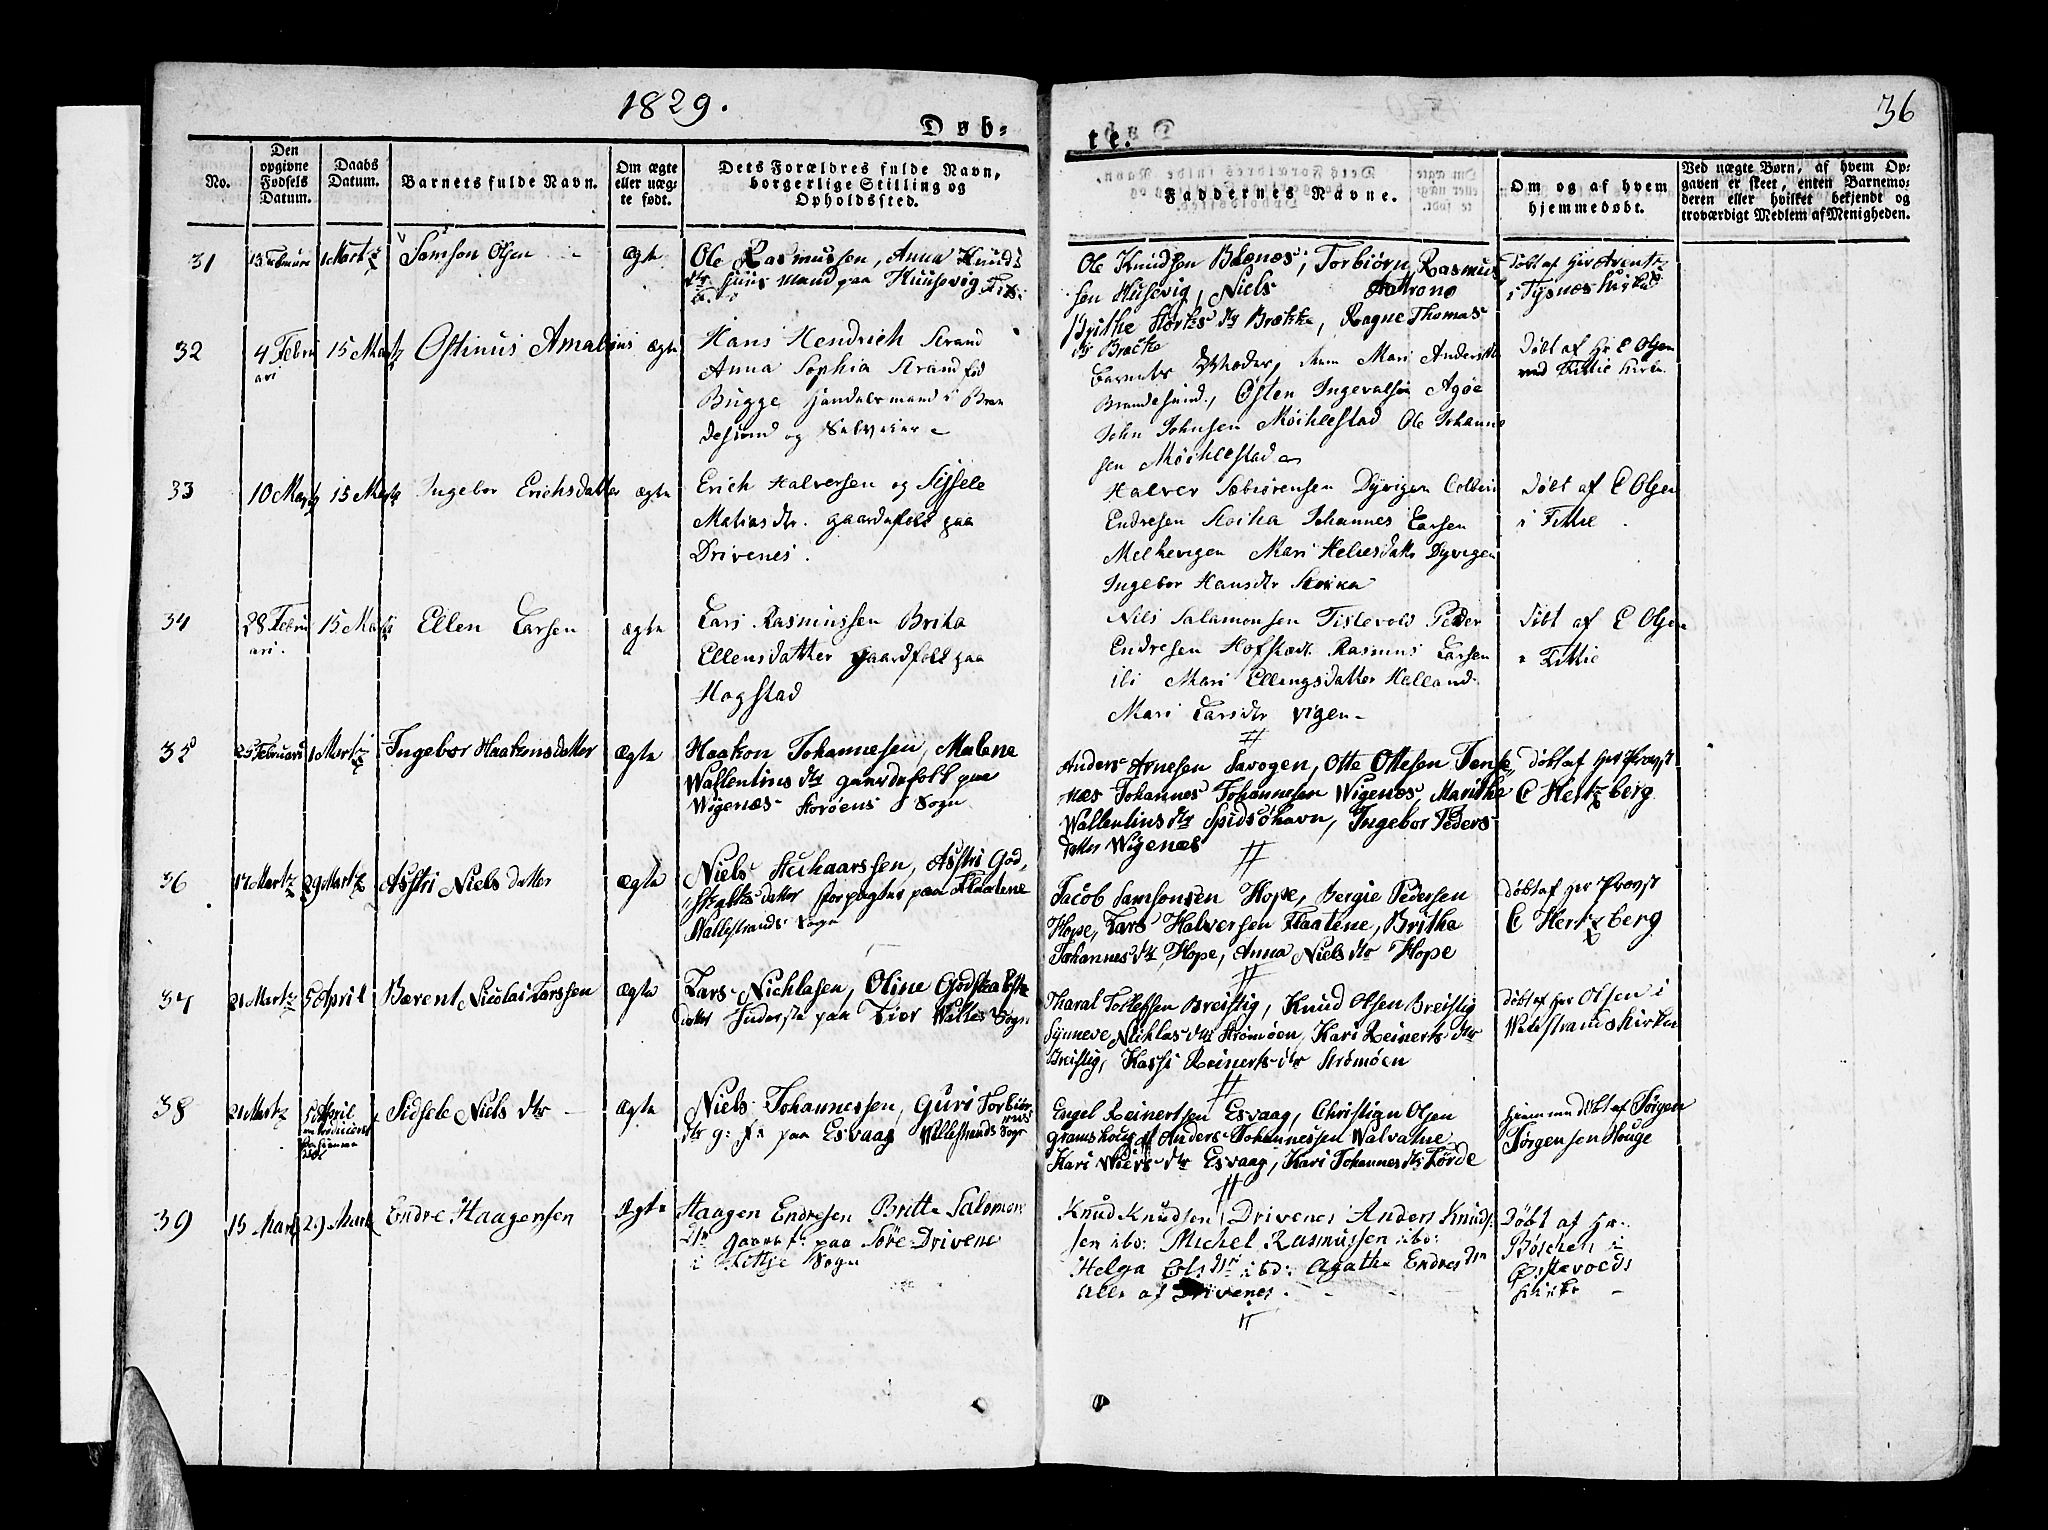 1829.
36
Døb-
te.
No.
Den opgivne Fødsels Datum.
Daabs Datum.
Barnets fulde Navn.
Om ægte eller uæg-te født.
Dets Forældres fulde Navn, borgerlige Stilling og Opholdssted.
Faddernes Navne.
Om og af hvem hjemmedøbt.
Ved uægte Børn, af hvem Op-
gaven er skeet, enten Barnemo-
deren eller hvilket bekjendt og
troværdigt Medlem af Menigheden.
31 13 Februari 1 Martz Samson Olsen ægte
Ole Rasmussen, Anna Knuds
dtr huus mand paa Huusevig
Ole Knudsen Brenæs, Torbiørn Rasmus
sen Husevig, Niels
Brithe dtr Brekke, Ragne Thomas
dtr Brække
Døbt af Hr Arentz
i Tysnæs kirke
32 4 Febru ari 15 Martz Ostinus Amalius ægte
Hans Hendrich Strand
Anna Sophia Strand fød
Brügge handelsmand i Bran
desund og Selveier
Barnets Moder, Mari Anders dtr
Brandesund, Østen Ingevalsen Agøe
John Johnsen Møchlestad Ole Johanne
sen Møchlestad
Døbt af Hr E Olsen
ved Fittie kirke
33 10 Martz 15 Martz Ingebor Erichsdatter ægte
Erich Halversen og Sissele
Matiasdtr. gaardsfolk paa
Drivenes.
Halver Sebiørensen Dyvigen
Endresen Stoika Johannes Larsen
Melkevigen Mari Dyvigen
Ingebor Hansdtr Stoika
Døbt af E Olsen
i Fittie
34 28 Febru ari. 15 Martz Ellen Larsen ægte
Lars Rasmussen Brita
Ellensdatter gaardfolk paa
Hogstad
Nils Salamonsen Tislevold Peder
Endresen Hofstad Rasmus Larsen
ibi Mari Ellingsdatter Helland
Mari Larsdtr Vigen
Døbt af E Olsen
i Fittie
35 25 Februari 1 Martz Ingebor Haakensdatter ægte
Haakon Johannesen, Malene
Wallentins dtr gaardsfolk paa
Wigenæs Storöens Sogn
Anders Arnesen Savogen, Otte Ottesen Tense
næs Johannes Johannesen Wigenæs, Marithe
Wallentins dtr Spidsöhavn, Ingebor Peders
datter Wigenæs
Døbt af Her Provst
C Hertzberg
36 17 Martz 29 Martz Astri Niels datter ægte
Niels Astri God
datter forpagter paa Flaatene
Wallestrands Sogn
Jacob Samsonsen Hope, Bergie Pedersen
Hope, Lars Halversen Flaatene, Brithe
Johannes dtr Hope, Anna Niels dtr Hope
Døbt af Her Provst
C Hertzberg
37 21 Martz 5 April Bærent Nicolai Larssen ægte
Lars Nichlasen, Oline Godskalks
datter Inderste paa Sogn
Tharal Tollefsen Breistig, Knud Olsen Breistig
Synneve Nicklas dtr Strømøen, Kari Reinerts dtr
Breistig, Kassi Reinerts dtr Strömöen
Døbt af Her Olsen i
Walestrands kirke
38 21 Martz 5 April Sidsele Niels dtr ægte
Niels Johannessen, Guri Torbiör
dtr g: f: paa Esvaag Wallestrands Sogn
Engel Reinertsen Esvaag, Christian Olsen
Gramshoug Anders Johannessen Walvatne,
Kari dtr Esvaag, Kari Johannes dtr Lørde
Hiemme døbt af Jörgen
Jörgensen Houge
39 15 Martz 29 Martz Endre Haagensen Ægte
Haagen Endresen Britta Salomon
dtr gaardf: paa Söre Drivene
i Fittje Sogn
Knud Knudsen Drivenes Anders Knud
sen ibo: Michel Rasmussen ibo:
Helga ibd: Agathe Endres dr
alle af Drivenes.
Døbt af Hr
i
Kirke